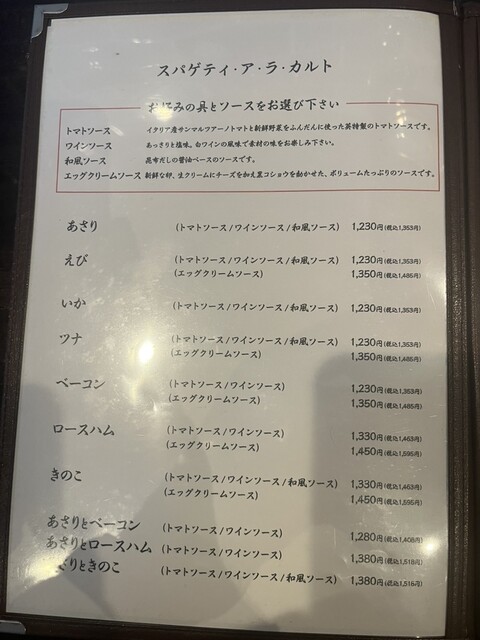 スパゲティ・ア・ラ・カルト
お好みの具とソースをお選び下さい
トマトソース イタリア産サンマルツアーノトマトと新鮮野菜をふんだんに使った英特製のトマトソースです。
ワインソース あっさりと塩味。白ワインの風味で素材の味をお楽しみ下さい。
和風ソース 昆布だしの醤油ベースのソースです。
エッグクリームソース 新鮮な卵、生クリームにチーズを加え黒コショウを効かせた、ボリュームたっぷりのソースです。
あさり (トマトソース/ワインソース/和風ソース) 1,230円(税込1,353円)
えび (トマトソース/ワインソース/和風ソース) 1,230円(税込1,353円)
(エッグクリームソース) 1,350円(税込1,485円)
いか (トマトソース/ワインソース/和風ソース) 1,230円(税込1,353円)
ツナ (トマトソース/ワインソース/和風ソース) 1,230円(税込1,353円)
(エッグクリームソース) 1,350円(税込1,485円)
ベーコン (トマトソース/ワインソース) 1,230円(税込1,353円)
(エッグクリームソース) 1,350円(税込1,485円)
ロースハム (トマトソース/ワインソース) 1,330円(税込1,463円)
(エッグクリームソース) 1,450円(税込1,595円)
きのこ (トマトソース/ワインソース/和風ソース) 1,330円(税込1,463円)
(エッグクリームソース) 1,450円(税込1,595円)
あさりとベーコン (トマトソース/ワインソース) 1,280円(税込1,408円)
あさりとロースハム (トマトソース/ワインソース) 1,380円(税込1,518円)
さりときのこ (トマトソース/ワインソース/和風ソース) 1,380円(税込1,518円)